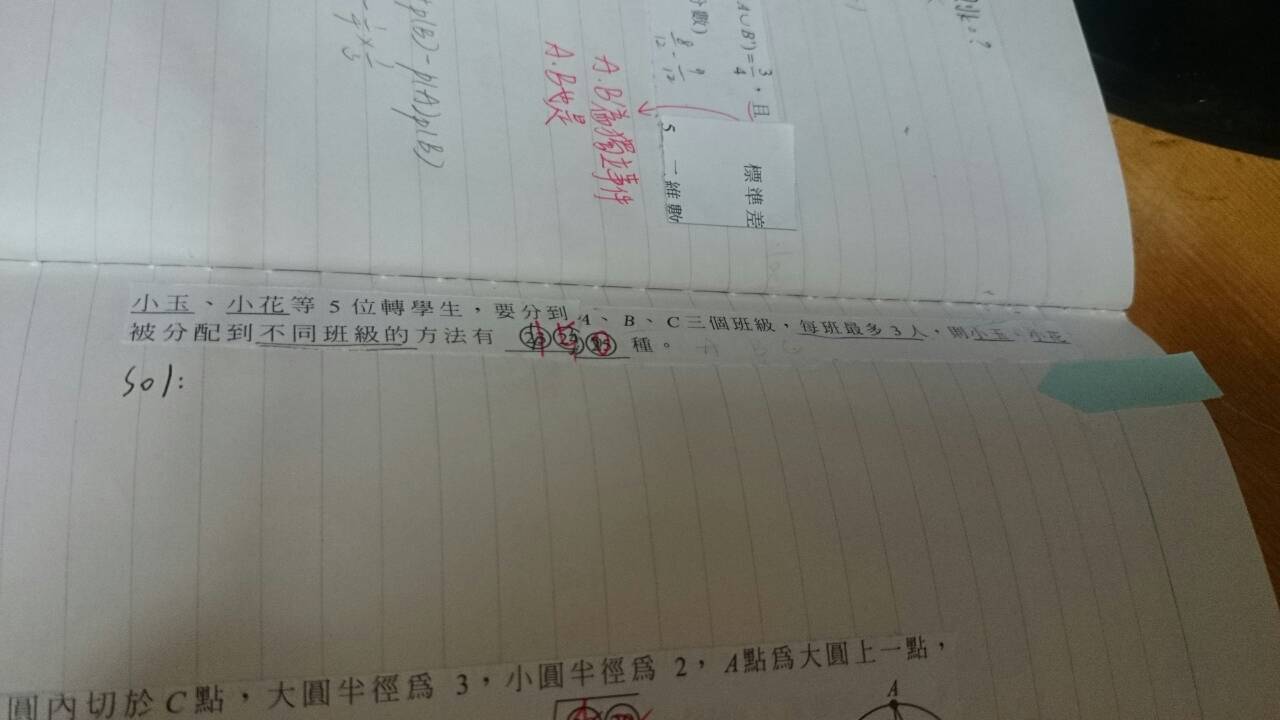 別解?
A∪B')=3/4,且
分數)
8/12 - 9/12
A.B為獨立事件
A.B也是
+p(B)-p(A)p(B)
標準差
5 一維數
小玉、小花等 5 位轉學生,要分到 A、B、C三個班級,每班最多 3 人,則小玉、小花
被分配到不同班級的方法有 種。
sol:
圓內切於 C 點,大圓半徑為 3,小圓半徑為 2,A點為大圓上一點,
A